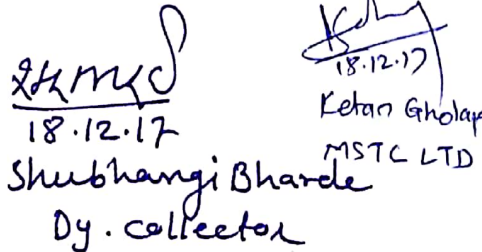 18.12.17
Shubhangi Bharde
Dy. Collector
18.12.17
Ketan Gholap
MSTC LTD